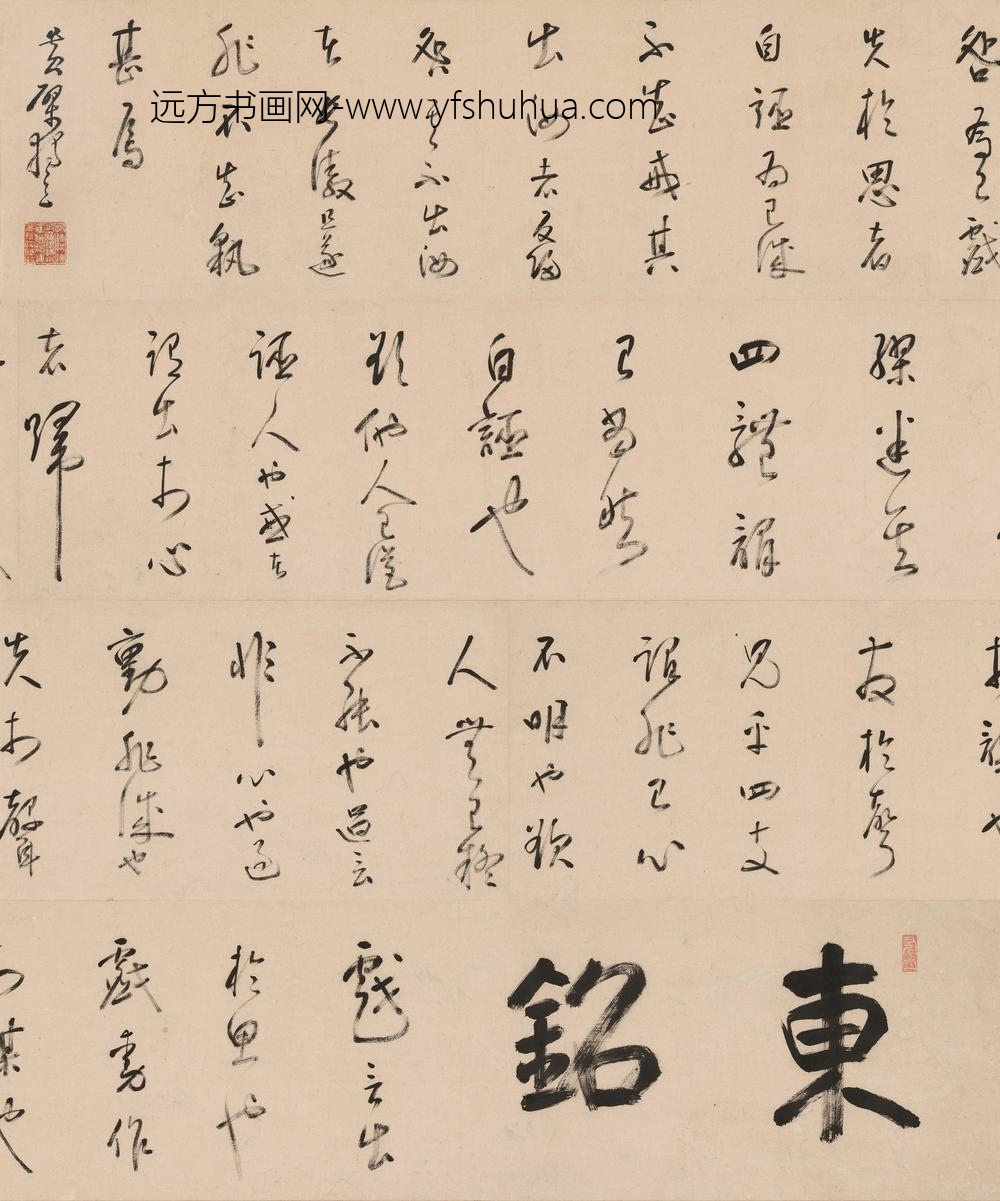 東
銘
戲言出
於思也
戲動作
於謀也
發於聲
見乎四支
謂非己心
不明也欲
人無己疑
不能也過言
非心也過
動非誠也
失於聲
繆迷其
四體謂
己當然
自誣也
欲他人己從
誣人也或者
謂出於心
者歸
咎為己戲
失於思者
自誣為己誠
不知戒其
出汝者反歸
咎其不出汝
者長傲且遂
非不知孰
甚焉
黄檗獨立
远方书画网-www.yfshuhua.com